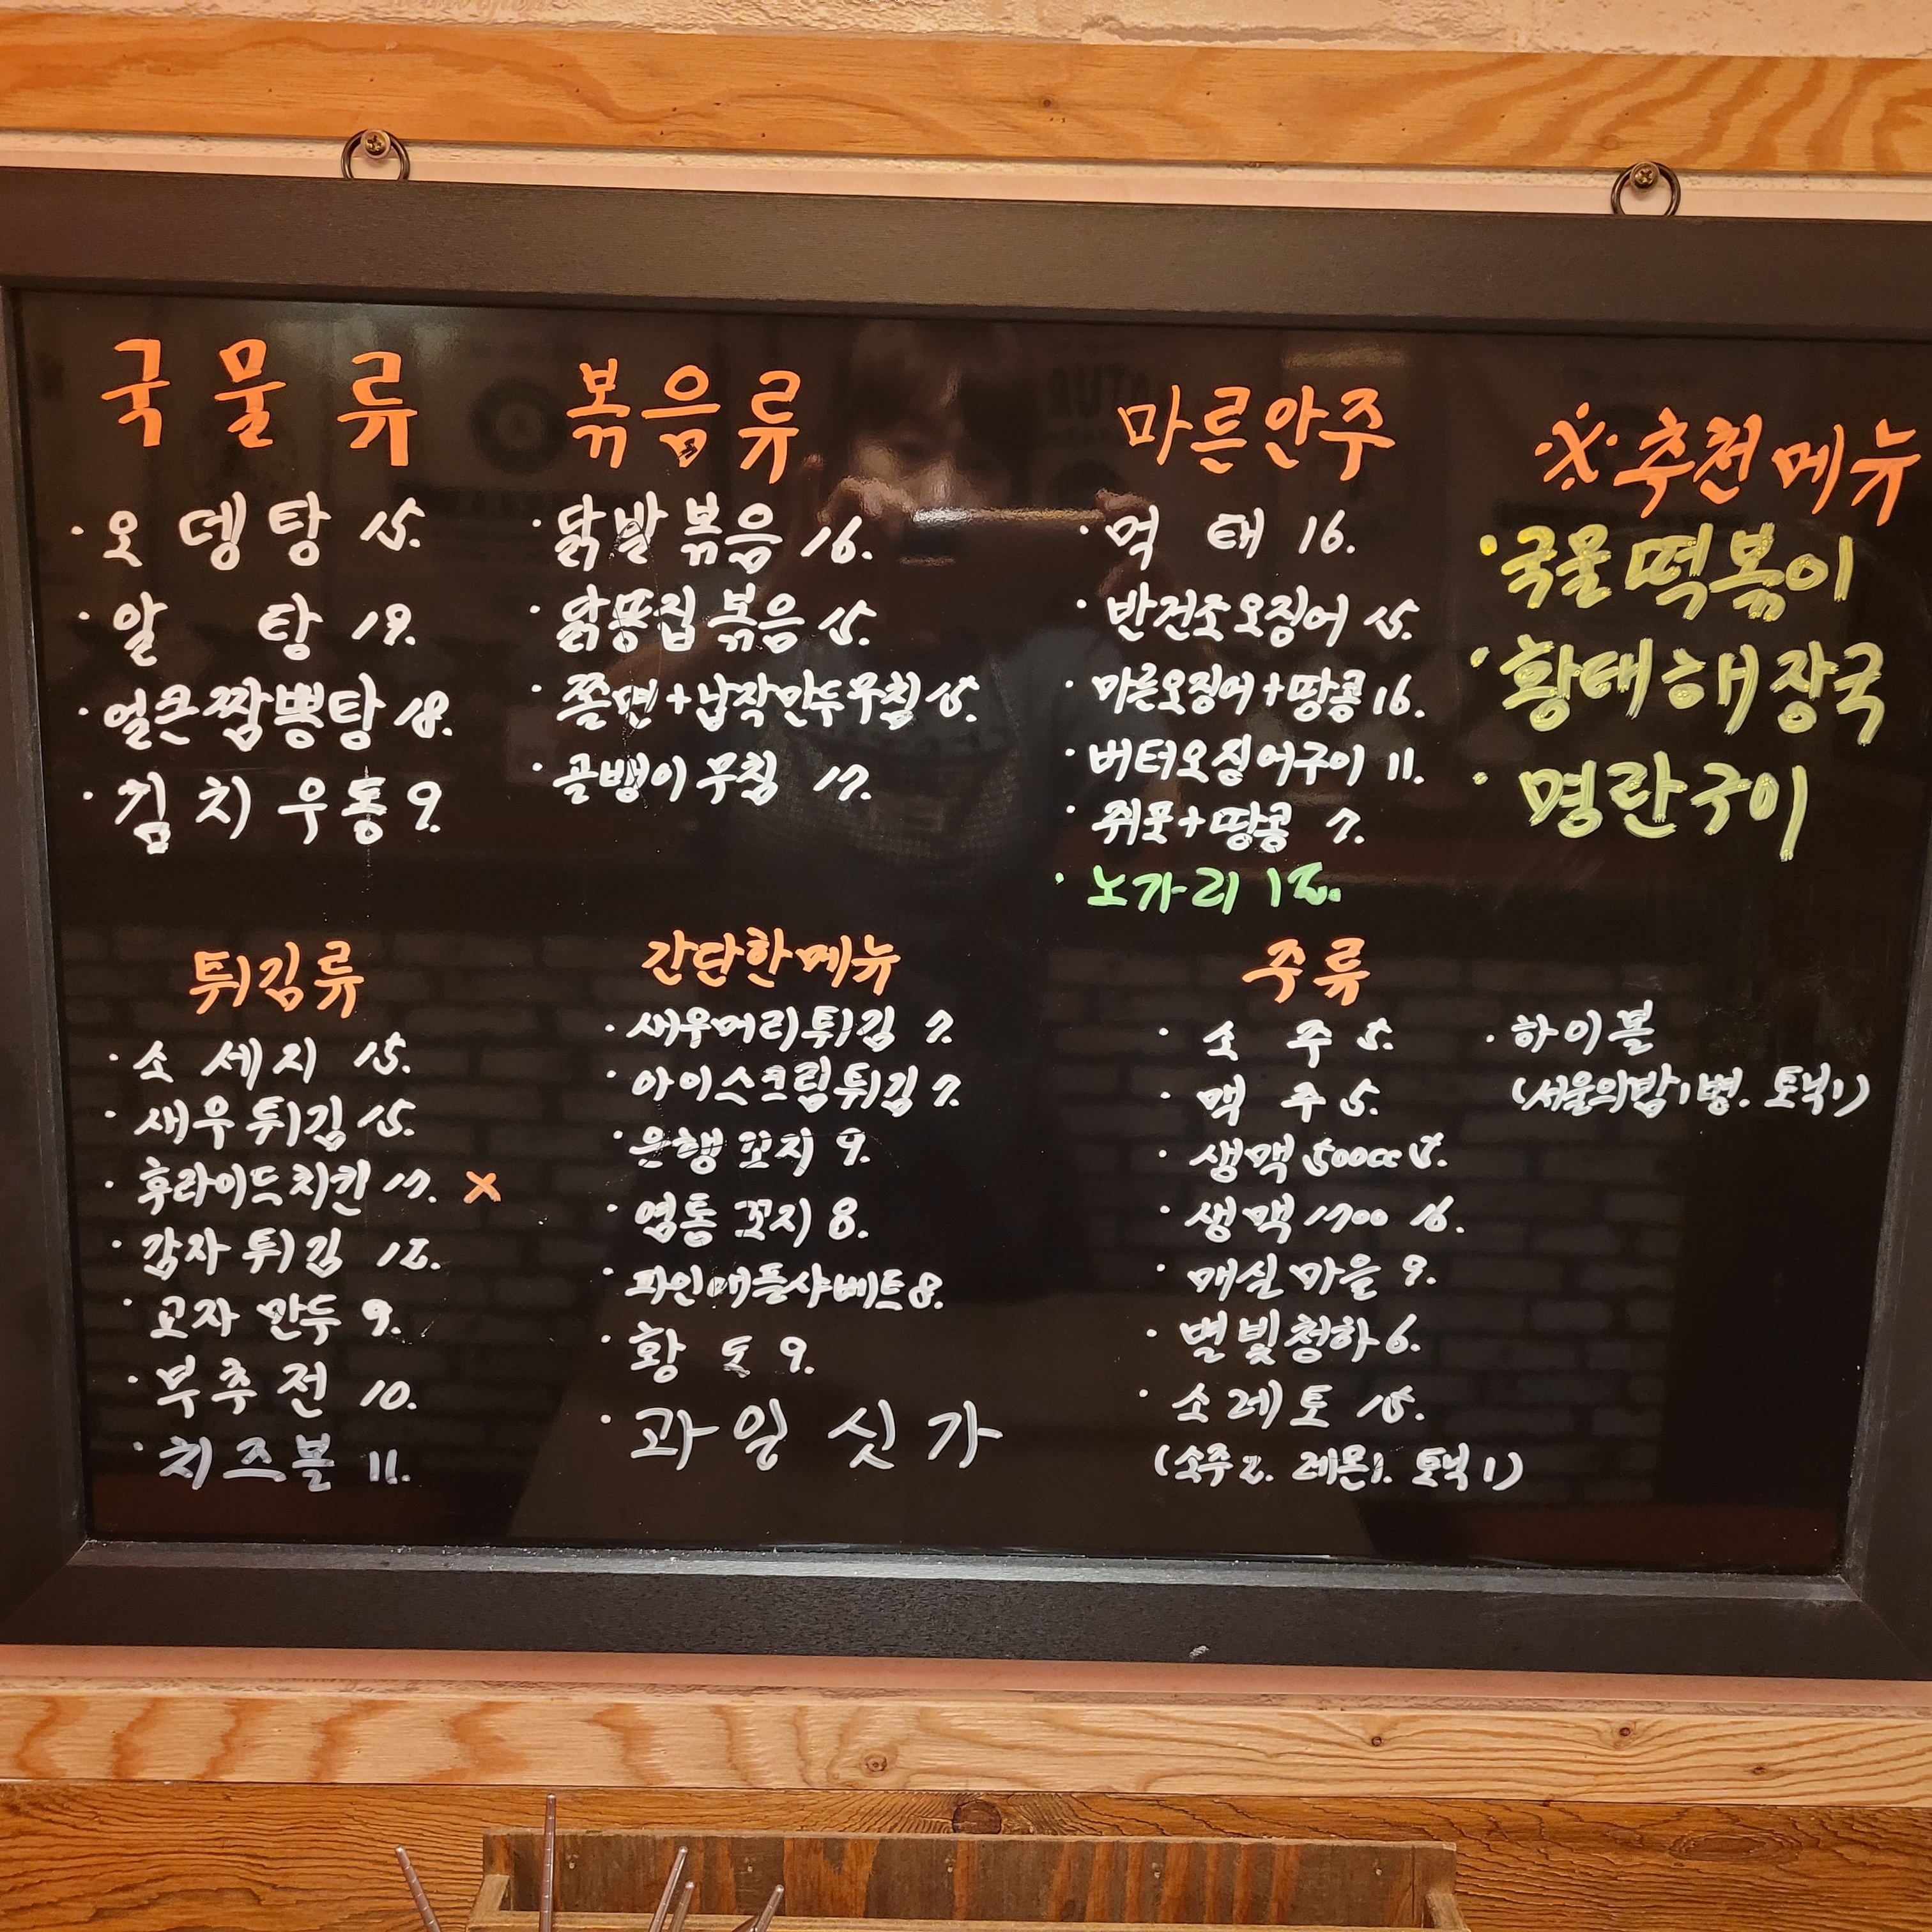 국물류
· 오뎅탕 15.
· 알탕 19.
· 얼큰짬뽕탕 18.
· 김치우동 9.
볶음류
· 닭발볶음 16.
· 닭똥집볶음 15.
· 쫄면+납작만두무침 15.
· 골뱅이무침 17.
마른안주
· 먹태 16.
· 반건조오징어 15.
· 마른오징어+땅콩 16.
· 버터오징어구이 11.
· 쥐포+땅콩 7.
· 노가리 12.
※추천메뉴
· 국물떡볶이
· 황태해장국
· 명란구이
튀김류
· 소세지 15.
· 새우튀김 15.
· 후라이드치킨 17. X
· 감자튀김 12.
· 교자만두 9.
· 부추전 10.
· 치즈볼 11.
간단한메뉴
· 새우머리튀김 7.
· 아이스크림튀김 7.
· 은행꼬지 9.
· 염통꼬지 8.
· 파인애플샤베트 8.
· 황도 9.
· 과일싯가
주류
· 소주 5.
· 맥주 5.
· 생맥 500cc 5.
· 생맥 1700 16.
· 매실마을 9.
· 별빛청하 6.
· 소레토 15.
(소주2. 레몬1. 토닉1)
· 하이볼
(서울의밤1병. 토닉1)